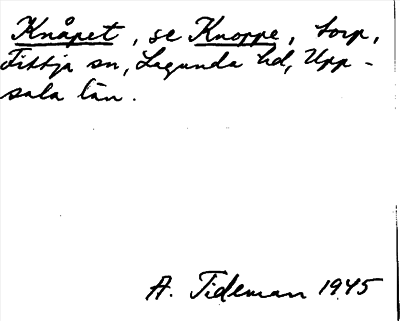 Knåpet, se Knoppe, torp,
Fittja sn, Lagunda hd, Upp-
sala län.
A. Tideman 1945